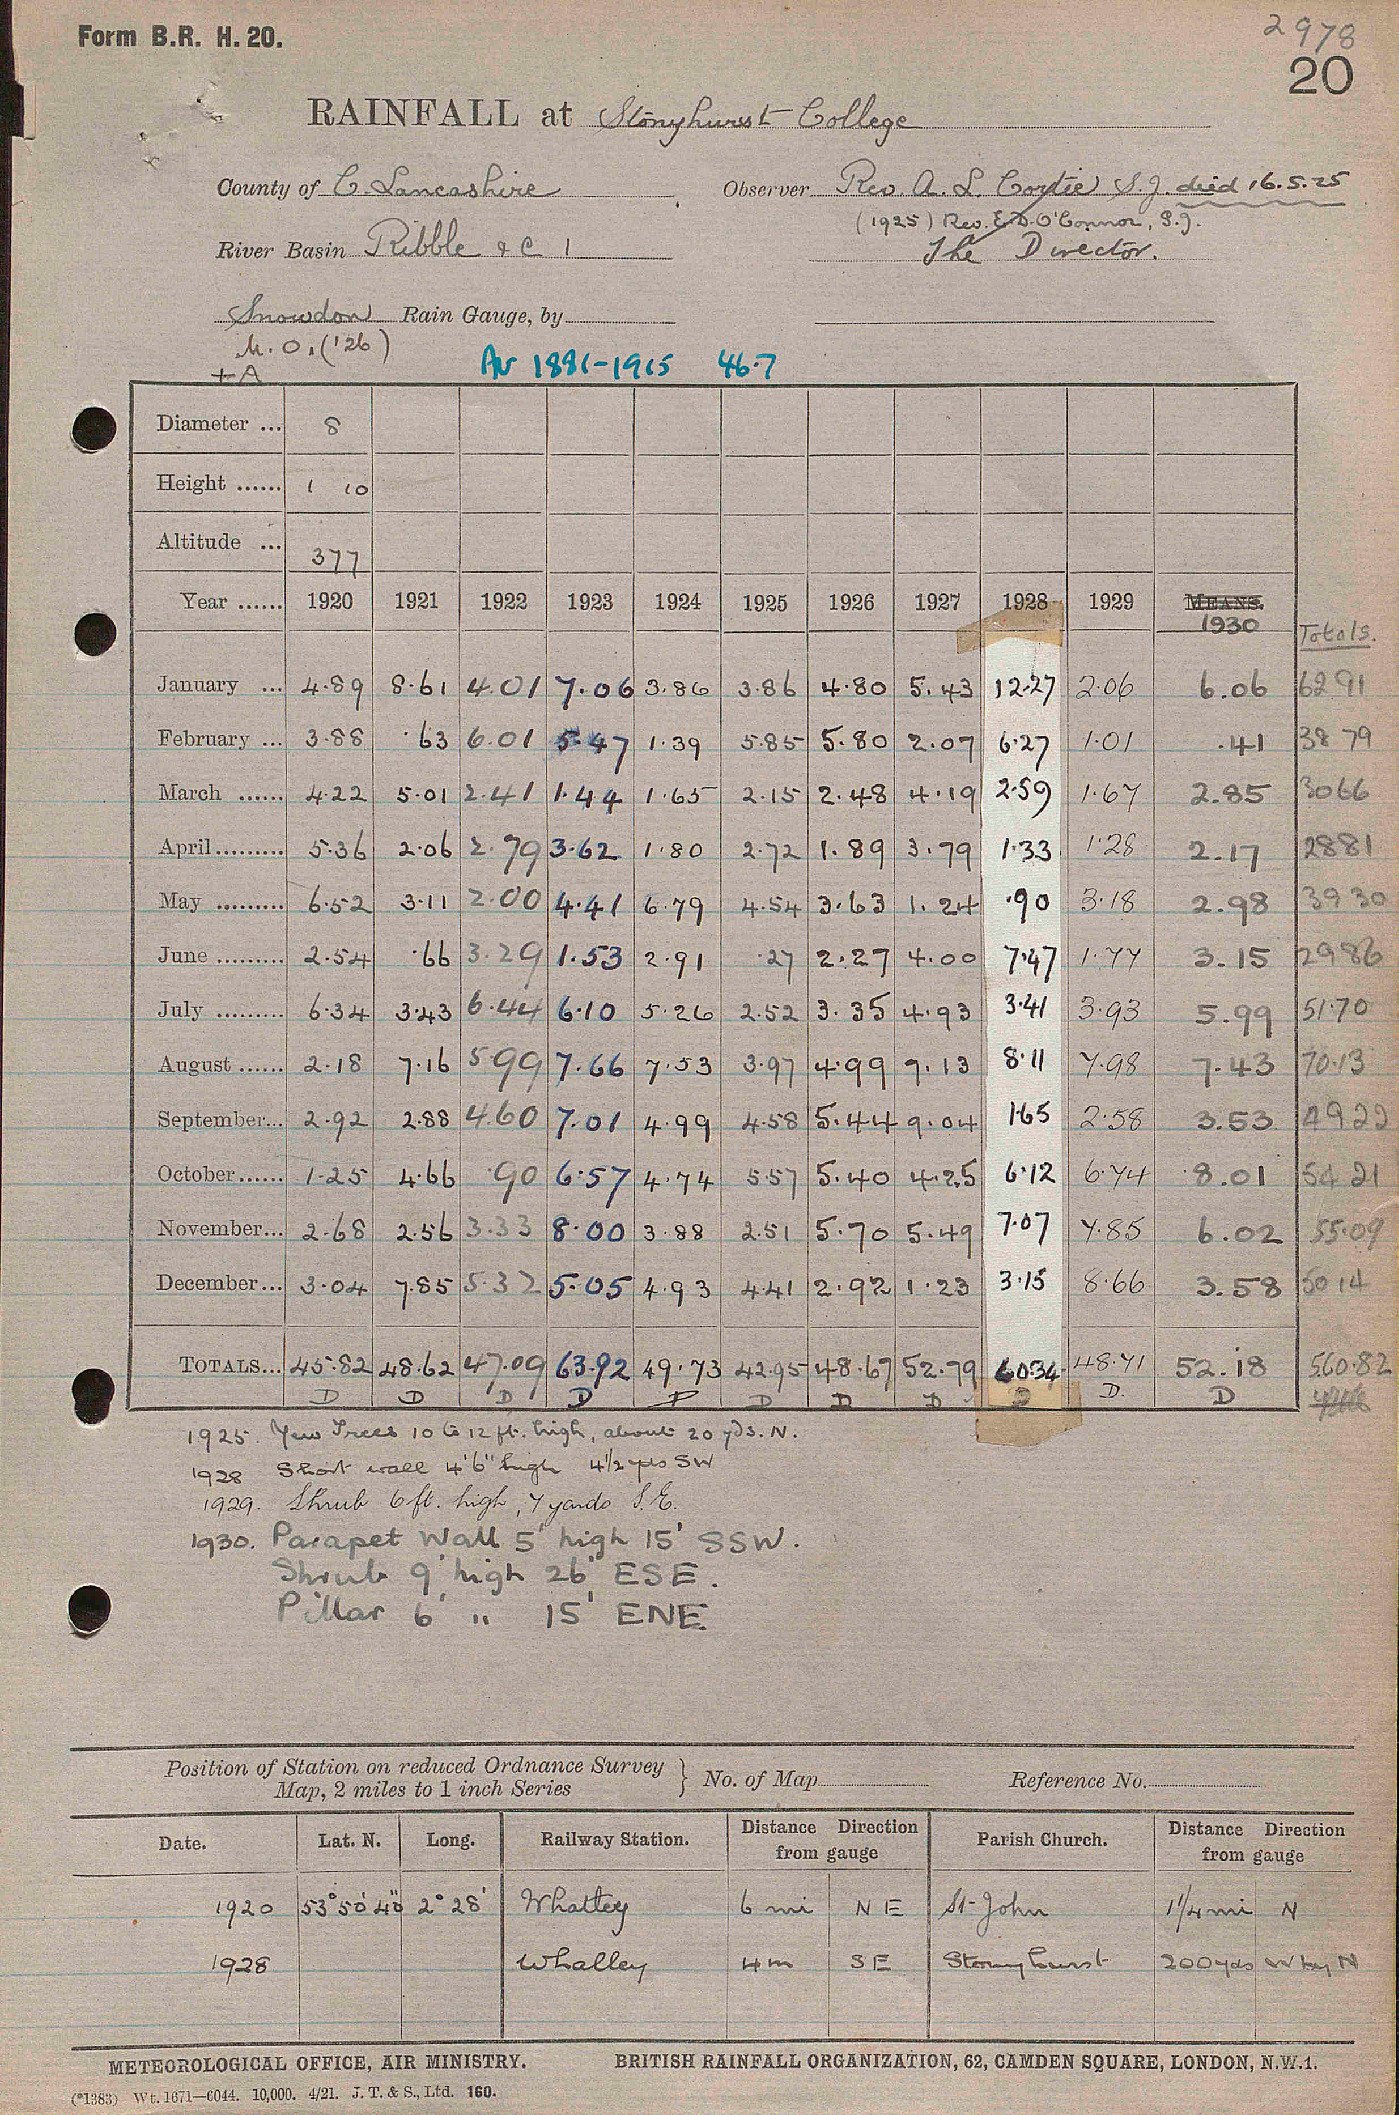 Form B.R. H. 20.
2978
20
RAINFALL at Stonyhurst College
County of C. Lancashire Observer Rev. A. L. Cortie S.J. died 16.5.25
(1925) Rev. E.D. O'Connor, S.J.
River Basin Ribble & C 1 The Director.
Snowdon Rain Gauge, by
M.O. ('26)
+A
Av 1881-1915 46.7
Diameter ... 8
Height ...... 1 10
Altitude ... 377
Year ...... 1920 1921 1922 1923 1924 1925 1926 1927 1928 1929 MEANS. 1930 Totals.
January ... 4.89 8.61 4.01 7.06 3.86 3.86 4.80 5.43 12.27 2.06 6.06 62 91
February ... 3.88 .63 6.01 5.47 1.39 5.85 5.80 2.07 6.27 1.01 .41 38 79
March ...... 4.22 5.01 2.41 1.44 1.65 2.15 2.48 4.19 2.59 1.67 2.85 30 66
April ......... 5.36 2.06 2.79 3.62 1.80 2.72 1.89 3.79 1.33 1.28 2.17 28 81
May ......... 6.52 3.11 2.00 4.41 6.79 4.54 3.63 1.24 .90 3.18 2.98 39 30
June ......... 2.54 .66 3.29 1.53 2.91 .27 2.27 4.00 7.47 1.77 3.15 29 86
July ......... 6.34 3.43 6.44 6.10 5.26 2.52 3.35 4.93 3.41 3.93 5.99 51.70
August ...... 2.18 7.16 5.99 7.66 7.53 3.97 4.99 9.13 8.11 7.98 7.43 70.13
September... 2.92 2.88 4.60 7.01 4.99 4.58 5.44 9.04 1.65 2.58 3.53 49 22
October...... 1.25 4.66 .90 6.57 4.74 5.57 5.40 4.25 6.12 6.74 8.01 54 21
November... 2.68 2.56 3.33 8.00 3.88 2.51 5.70 5.49 7.07 7.85 6.02 55.09
December... 3.04 7.85 5.32 5.05 4.93 4.41 2.92 1.23 3.15 8.66 3.58 50 14
TOTALS... 45.82 48.62 47.09 63.92 49.73 42.95 48.67 52.79 60.34 48.71 52.18 560.82
D D D D D D D D D D. D
1925. Yew Trees 10 to 12 ft. high, about 20 yds. N.
1928 Short wall 4'6" high 4 1/2 yds SW
1929. Shrub 6 ft. high, 7 yards S.E.
1930. Parapet Wall 5' high 15' SSW.
Shrub 9' high 26' ESE.
Pillar 6' " 15' ENE
Position of Station on reduced Ordnance Survey Map, 2 miles to 1 inch Series } No. of Map Reference No.
Date. Lat. N. Long. Railway Station. Distance Direction from gauge Parish Church. Distance Direction from gauge
1920 53°50'40" 2° 28' Whalley 6 mi NE St John 1 1/4 mi N
1928 Whalley 4 m SE Stonyhurst 200 yds W by N
METEOROLOGICAL OFFICE, AIR MINISTRY. BRITISH RAINFALL ORGANIZATION, 62, CAMDEN SQUARE, LONDON, N.W.1.
(*1383) Wt. 1671—6044. 10,000. 4/21. J. T. & S., Ltd. 160.